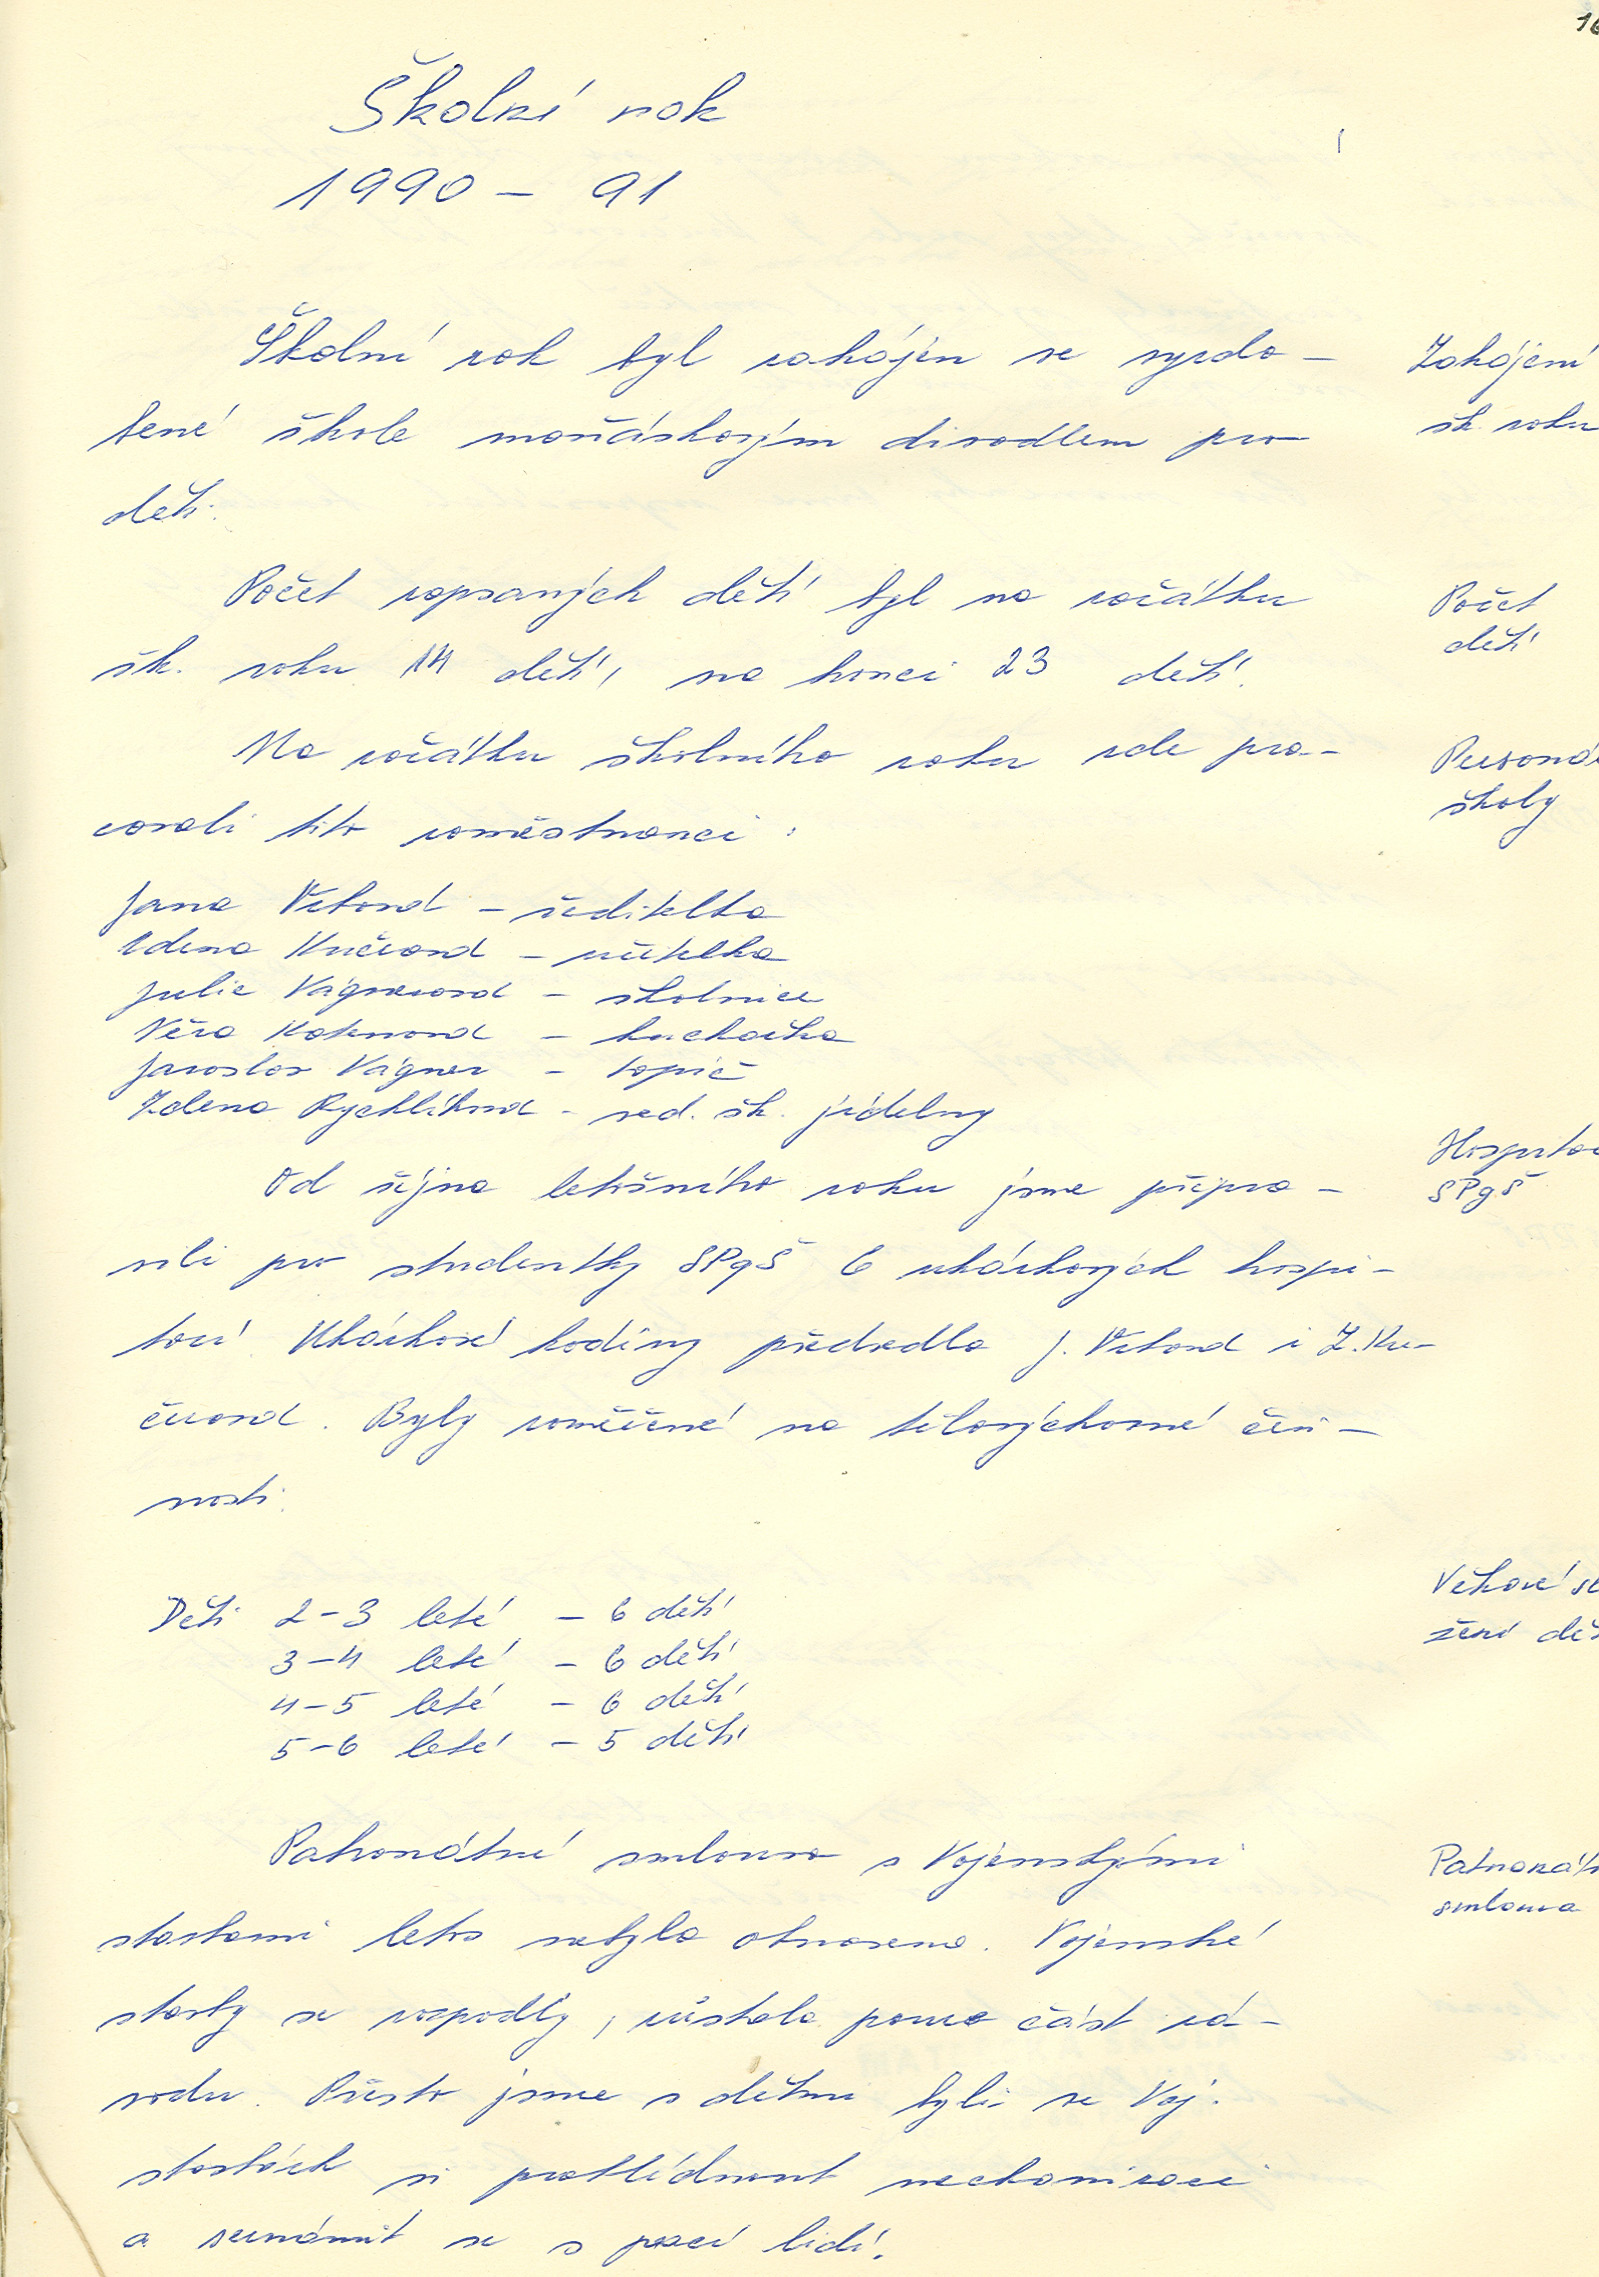 16
Školní rok
1990 - 91
Školní rok byl zahájen ve vyzdo-
Zahájení
bené škole maňáskovým divadlem pro
šk. roku
děti.
Počet zapsaných dětí byl na začátku
Počet
šk. roku 14 dětí, na konci 23 dětí.
dětí
Na začátku školního roku zde pra-
Personá
covali tito zaměstnanci:
školy
Jana Vrbová - ředitelka
Zdena Kučerová - učitelka
Julie Vágnerová - školnice
Věra - kuchařka
Jaroslav Vágner - topič
Zdena Rychlíková - ved. šk. jídelny
Od října letošního roku jsme připra-
SPgŠ
vili pro studentky SPgŠ 6 ukázkových hospi-
tací. Ukázkové hodiny předvedla J. Vrbová i Z. Ku-
čerová. Byly zaměřené na tělovýchovné čin-
nosti.
Děti 2-3 leté - 6 dětí
Věkové sl
3-4 leté - 6 dětí
žení dět
4-5 leté - 6 dětí
5-6 leté - 5 dětí
Patronátní smlouva s Vojenskými
Patronátn
stavbami letos nebyla obnovena. Vojenské
smlouva
stavby se rozpadly, zůstala pouze část zá-
vodu. Přesto jsme s dětmi byli ve Voj.
stavbách si prohlédnout mechanizaci
a seznámit se s prací lidí.